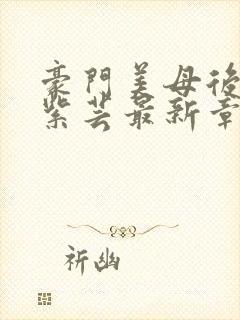 豪門美母後
紫芸最新章
祈幽